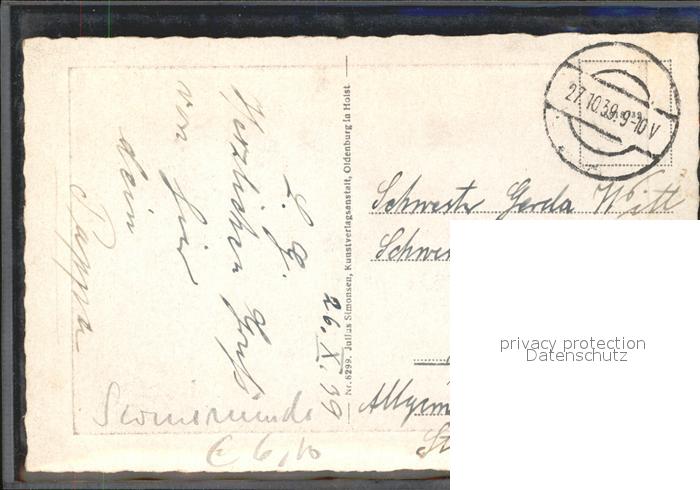 26. X. 39
L. G.
Herzlichen Gruß
von hier
dein
Pappa
Swinemünde
€ 6,10
Nr. 8299. Julius Simonsen, Kunstverlagsanstalt, Oldenburg in Holst
27.10.39.9-10 V
Schwester Gerda Witt
Schwes
Allgem
St
privacy protection
Datenschutz